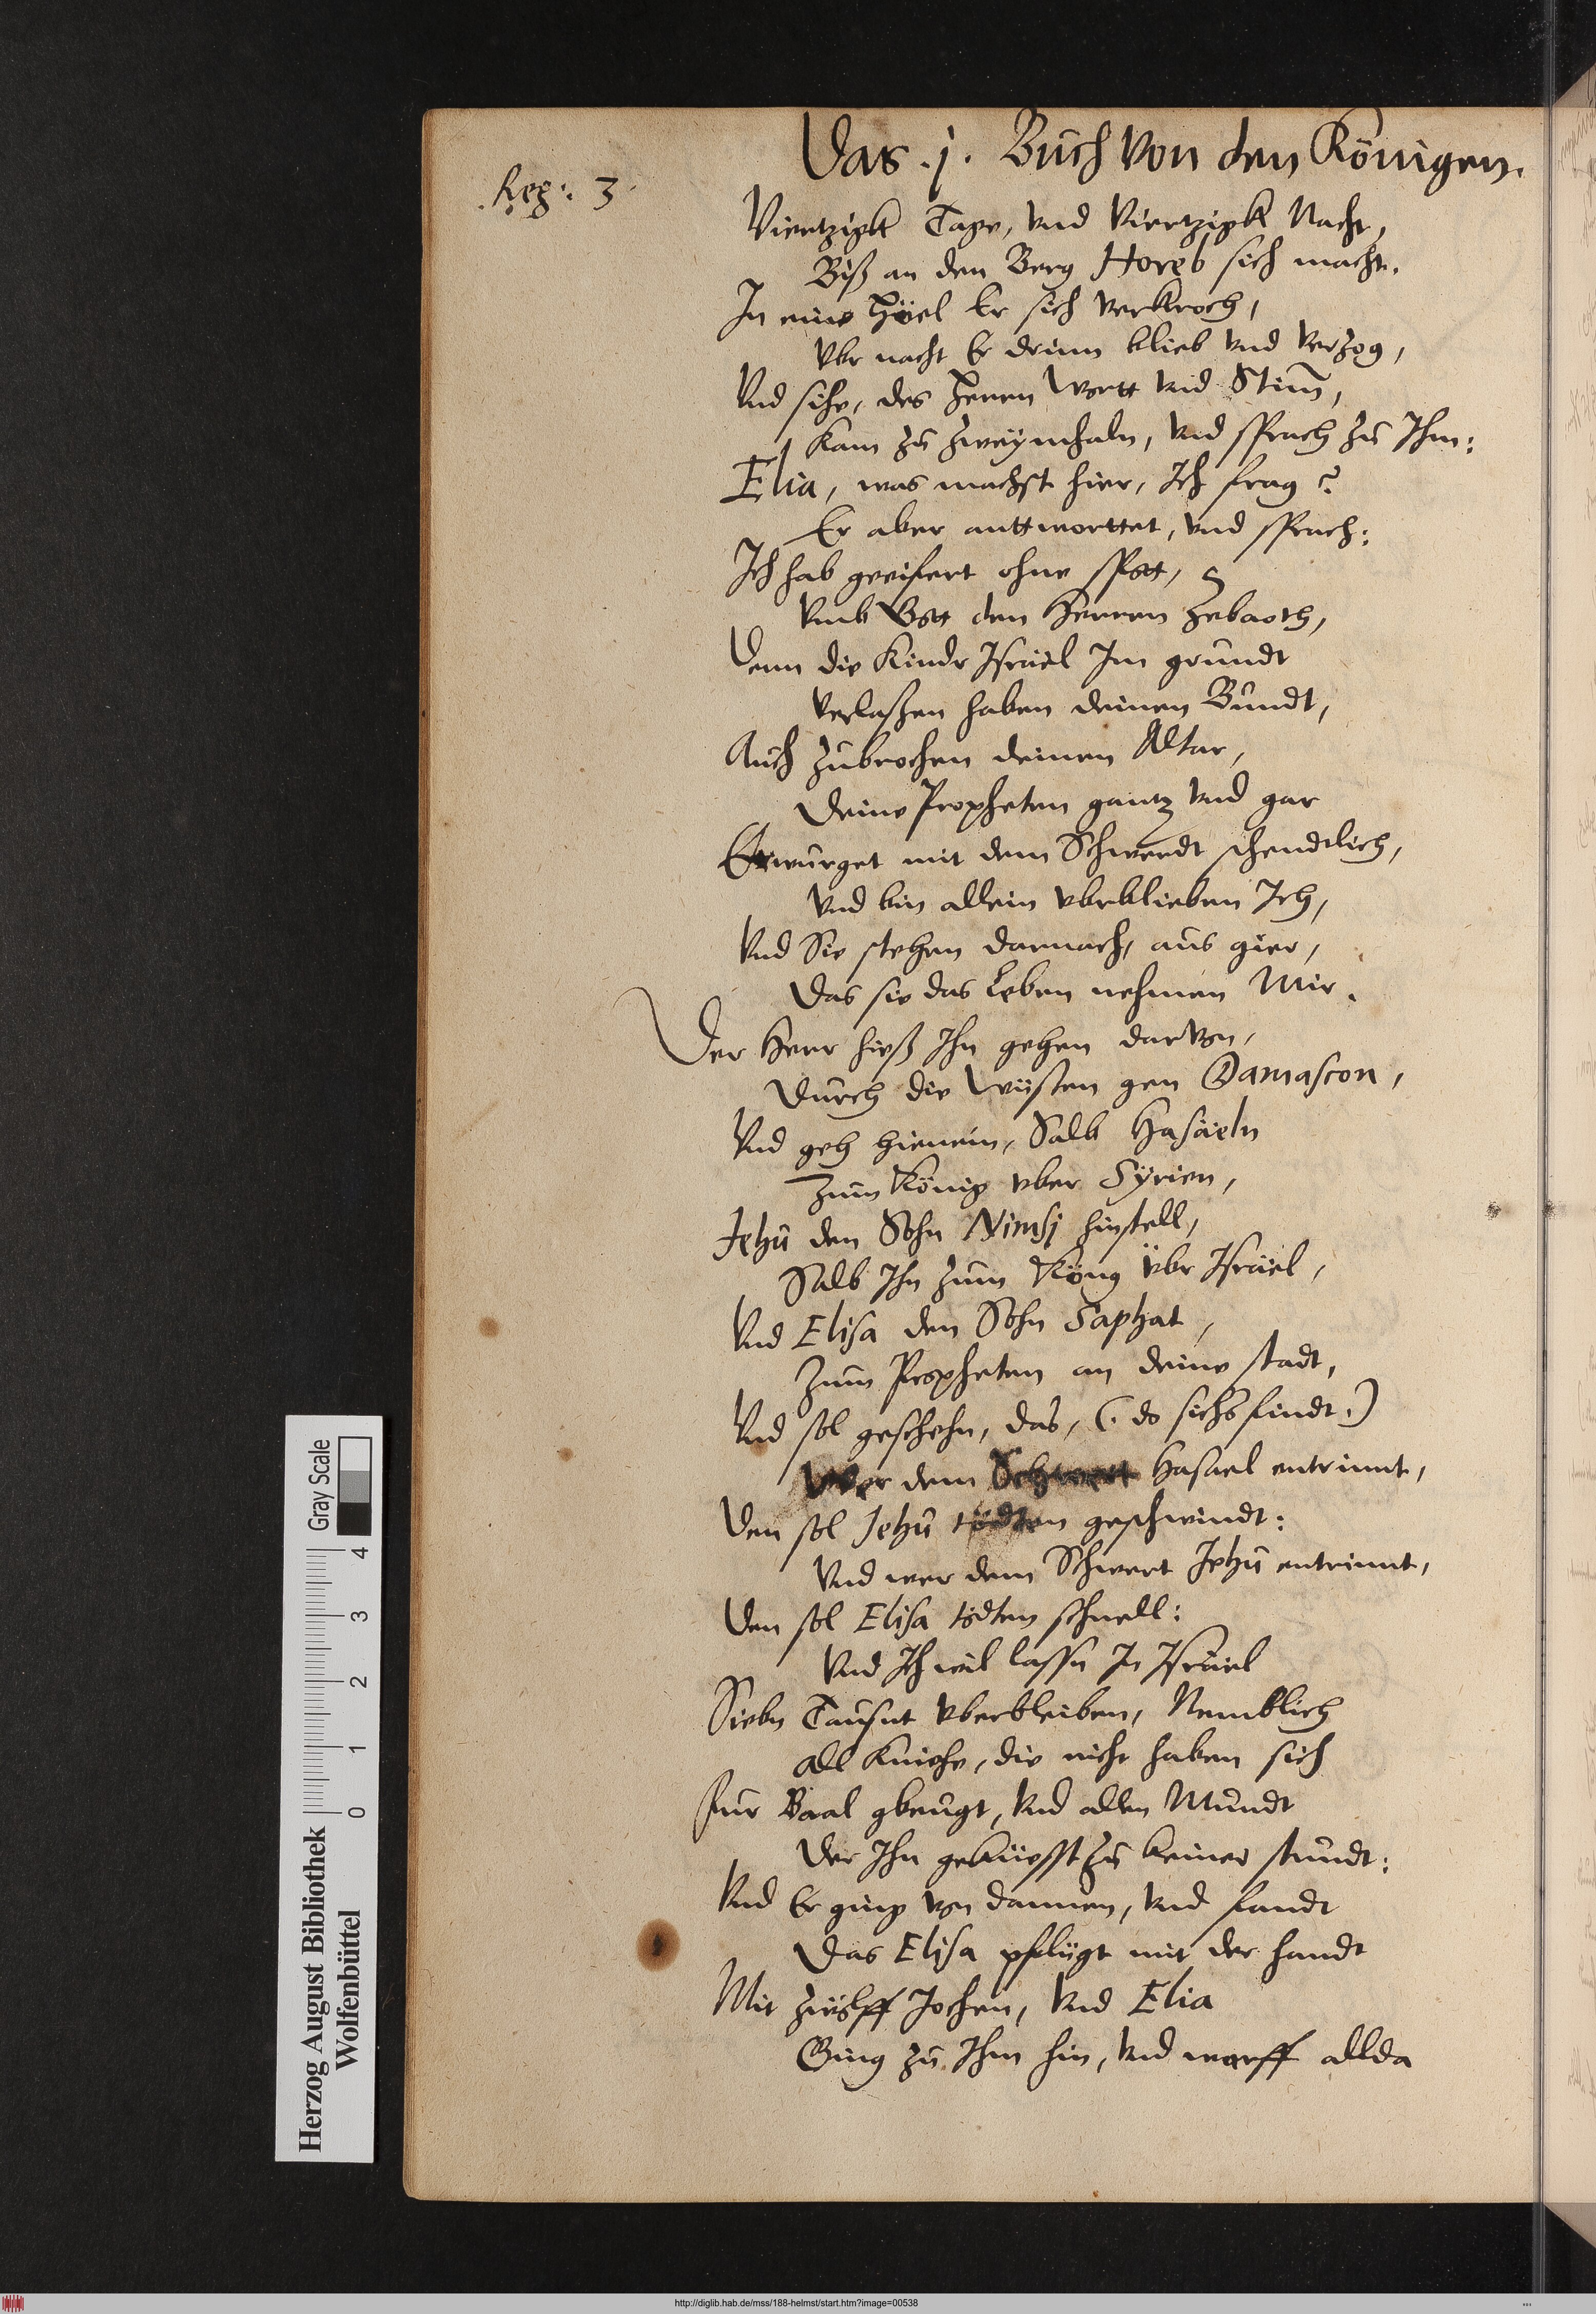 Das .j. Buch Von den Königen.
Reg: 3
Viertzigk Tage, vnd Viertzigk Nacht,
Biß an den Berg Horeb sich macht.
In eine Höel Er sich verkroch,
Vbr nacht Er drinn blieb vnd verzog,
Vnd sihe, des Herren Wortt vnd Stim̃,
Kam zu zweymhaln, vnd sprach zu Ihm:
Elia, was machst hier, Ich frag?
Er aber anttworttet, vnd sprach:
Ich hab geeifert ohne spott,
Vmb Gott den Herren Zebaoth,
Denn die Kindr Israel Im grundt
Verlaßen haben deinen Bundt,
Auch zubrochen deinen Altar,
Deine Propheten gantz vnd gar
Erwurget mit dem Schwerdt schendtlich,
Vnd bin allein vbrblieben Ich,
Vnd Sie stehen darnach, aus gier,
Das sie das Leben nehmen Mir.
Der Herr hieß Ihn gehen darvon,
Durch die Wüsten gen Damascon,
Vnd geh hienein, Salb Hasäeln
Zum König vber Syrien,
Jehu den Sohn Nimsj hinstell,
Salb Ihn zum Köng übr Israel,
Vnd Elisa den Sohn Saphat,
Zum Propheten an deine stadt,
Vnd sol geschehn, das, (. do sichs findt.)
Wer dem Schwert Hasael entrinnt,
Den sol Jehu tödten geschwindt:
Vnd wer dem Schwert Jehu entrinnt,
Den sol Elisa tödten schnell:
Vnd Ich wil lassn In Israel
Siebn Tausnt vberbleiben, Nemblich
All Kniehe, die nicht haben sich
Fur Baal gbeugt, Vnd allen Mundt
Der Ihn geküesst zu keiner stundt:
Vnd Er ging von dannen, vnd fandt
Das Elisa pflügt mit der handt
Mit zwölff Jochen, Vnd Elia
Ging zu Ihm hin, vnd warff allda
Herzog August Bibliothek
Wolfenbüttel
0 1 2 3 4
Gray Scale
http://diglib.hab.de/mss/188-helmst/start.htm?image=00538